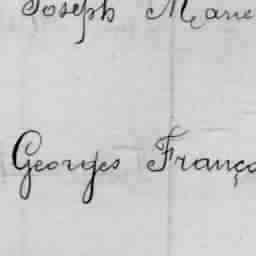 Joseph Marie
Georges França